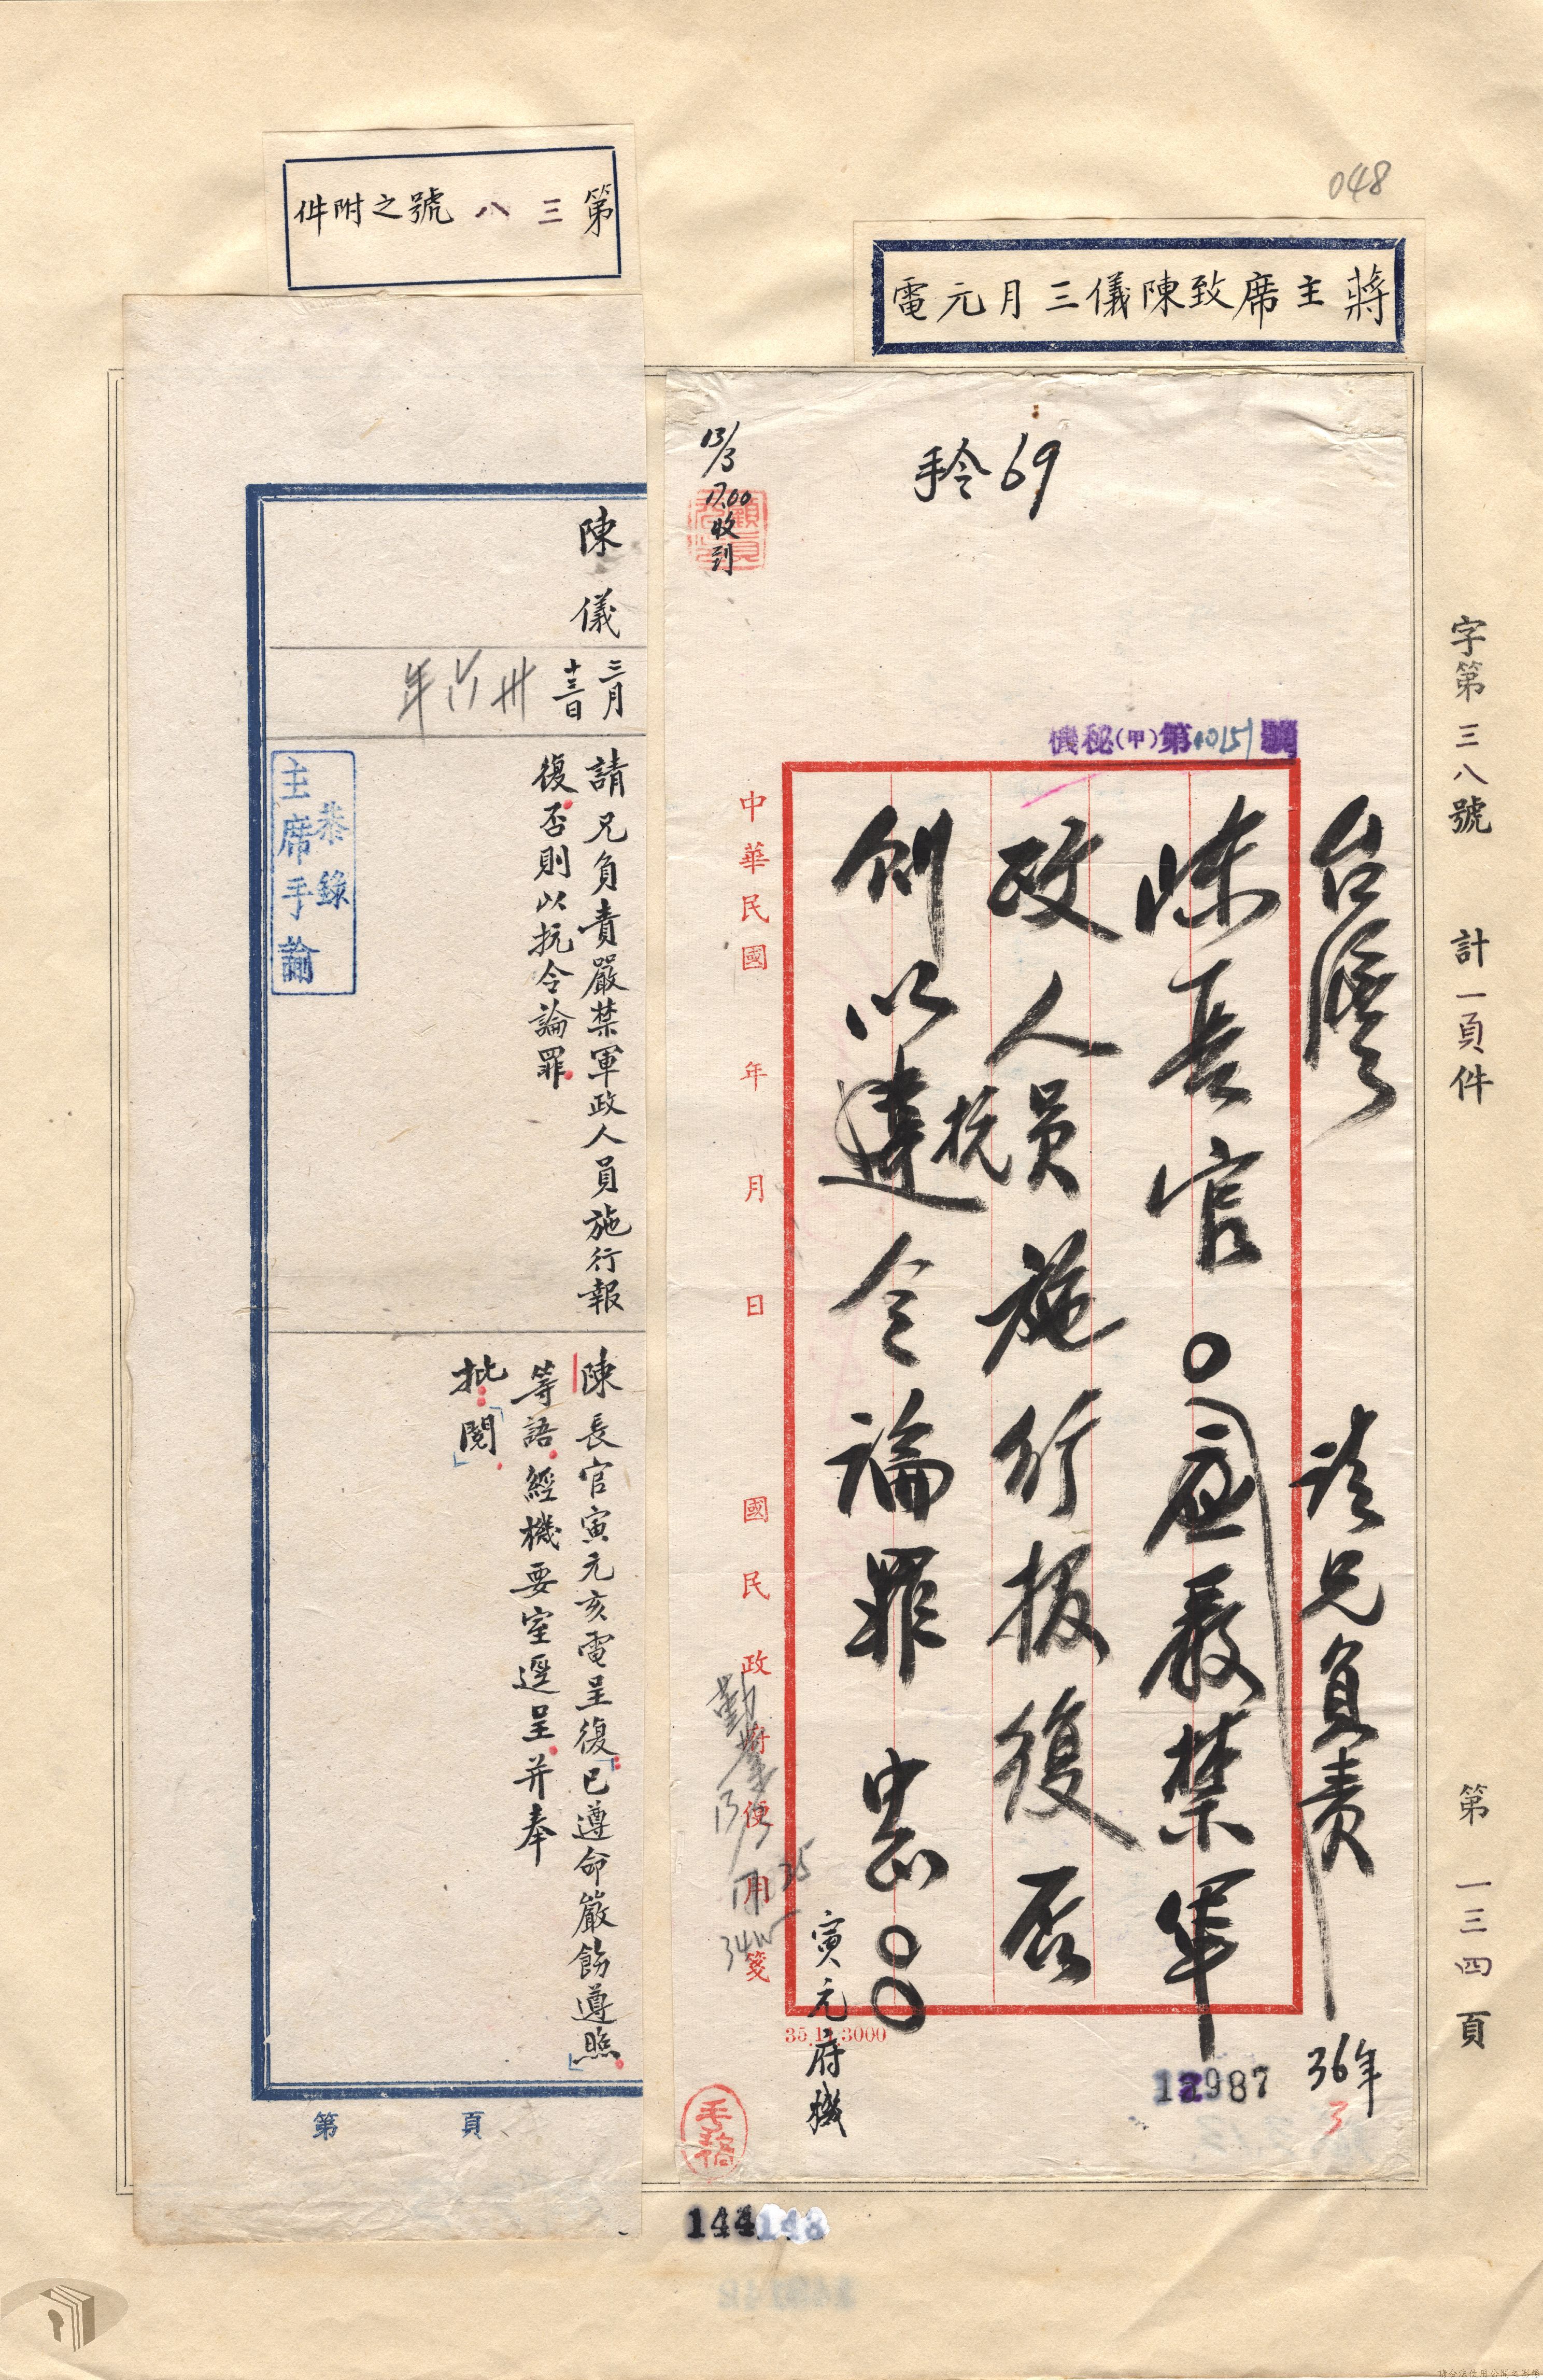 048
蔣主席致陳儀三月元電
字第三八號 計一頁件 第一三四頁
手令69
13/3
17.00
收到
機秘(甲)第10151號
台灣
陳長官○請兄負責嚴禁軍
政人員施行報復否
則以抗令論罪 中正○○
寅元府機
36年
3
12987
中華民國 年 月 日 國民政府便用箋
35.11.3000
手稿
第三八號之附件
陳儀
三月
十三日
卅六年
請兄負責嚴禁軍政人員施行報
復否則以抗令論罪
恭錄
主席手諭
陳長官寅元亥電呈復「已遵命嚴飭遵照」
等語經機要室逕呈并奉
批「閱」
第 頁
144
148